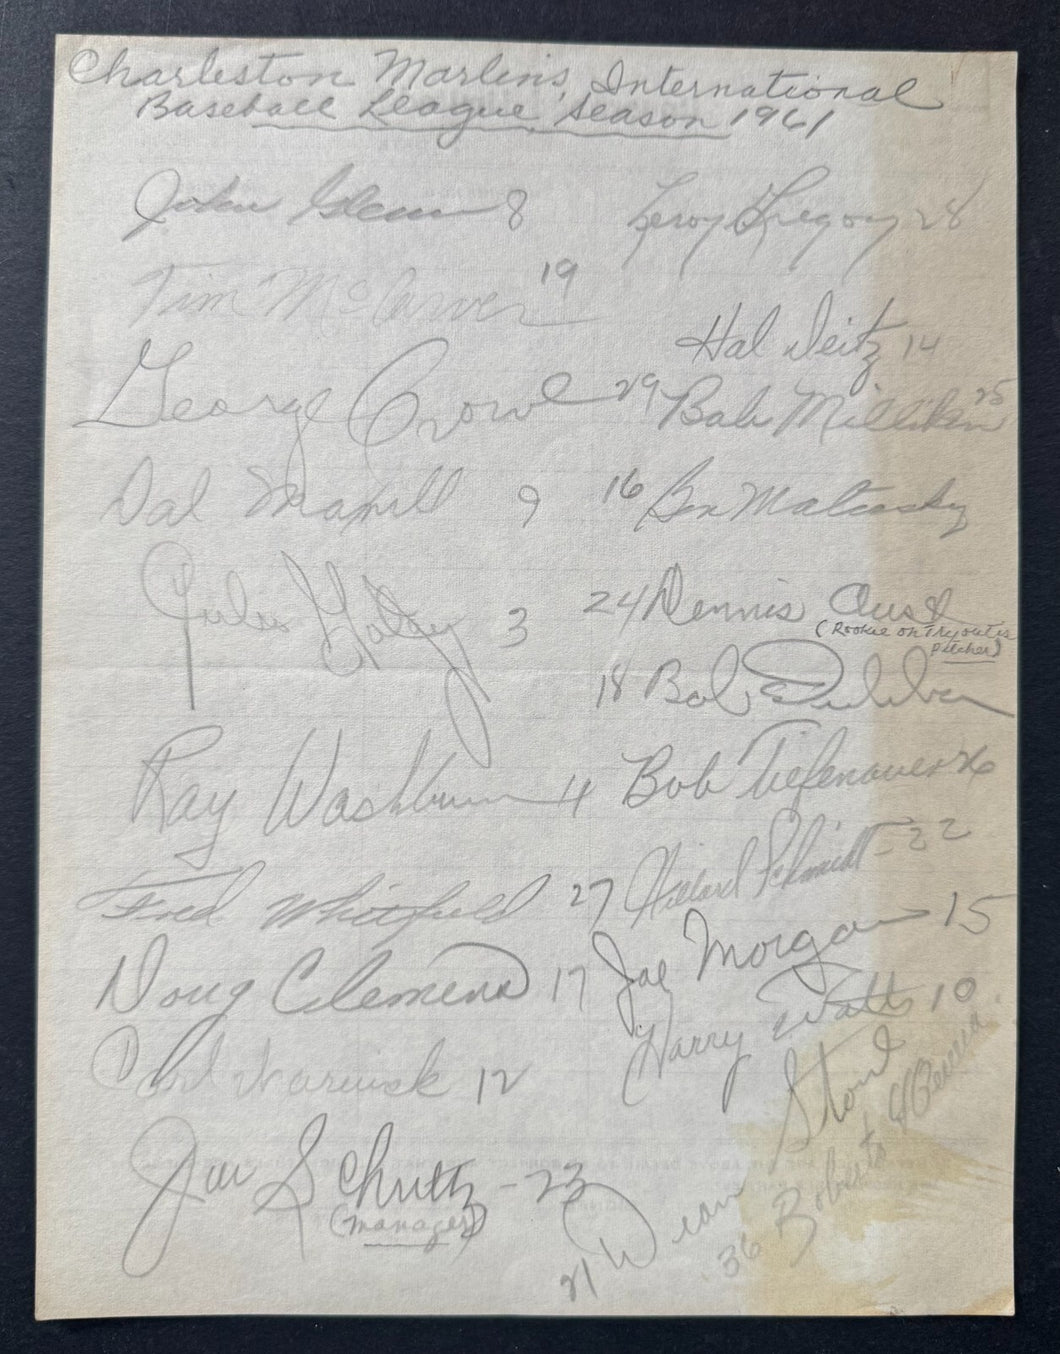 Charleston Marlins, International
Baseball League Season 1961
John Glenn 8
Tim McCarver 19
George Crowe 29
Dal Maxvill 9
Julio Gotay 3
Ray Washburn 4
Fred Whitfield 27
Doug Clemens 17
Carl Warwick 12
Joe Schultz - 23
(manager)
Leroy Gregory 28
Hal Deitz 14
Bob Milliken 25
16 Ben Mateosky
24 Dennis Aust
(Rookie on Tryout is
Pitcher)
18 Bob
Bob Tiefenauer 26
Willard Schmidt - 22
Joe Morgan 15
Harry Watts 10
21 Dean Stone
36 Roberto